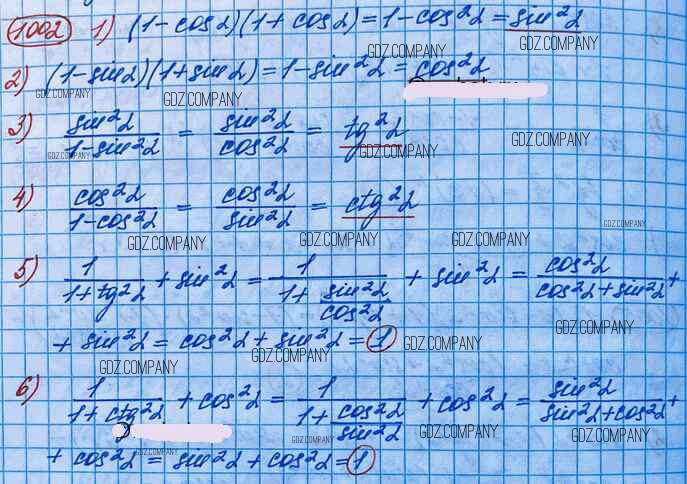 1002 1) (1-cosα)(1+cosα)=1-cos²α=sin²α
GDZ.COMPANY GDZ.COMPANY
2) (1-sinα)(1+sinα)=1-sin²α=cos²α
GDZ.COMPANY GDZ.COMPANY
3) sin²α/(1-sin²α) = sin²α/cos²α = tg²α
GDZ.COMPANY GDZ.COMPANY GDZ.COMPANY
4) cos²α/(1-cos²α) = cos²α/sin²α = ctg²α
GDZ.COMPANY
GDZ.COMPANY GDZ.COMPANY GDZ.COMPANY
5) 1/(1+tg²α) + sin²α = 1/(1+sin²α/cos²α) + sin²α = cos²α/(cos²α+sin²α) +
GDZ.COMPANY
+ sin²α = cos²α + sin²α = 1
GDZ.COMPANY GDZ.COMPANY GDZ.COMPANY
6) 1/(1+ctg²α) + cos²α = 1/(1+cos²α/sin²α) + cos²α = sin²α/(sin²α+cos²α) +
GDZ.COMPANY GDZ.COMPANY GDZ.COMPANY
+ cos²α = sin²α + cos²α = 1
GDZ.COMPANY